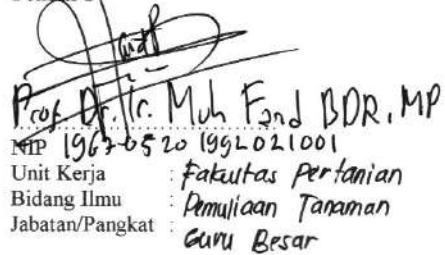 Prof. Dr. Ir. Muh Farid BDR, MP
NIP 19670520 199202 1001
Unit Kerja : Fakultas Pertanian
Bidang Ilmu : Pemuliaan Tanaman
Jabatan/Pangkat : Guru Besar